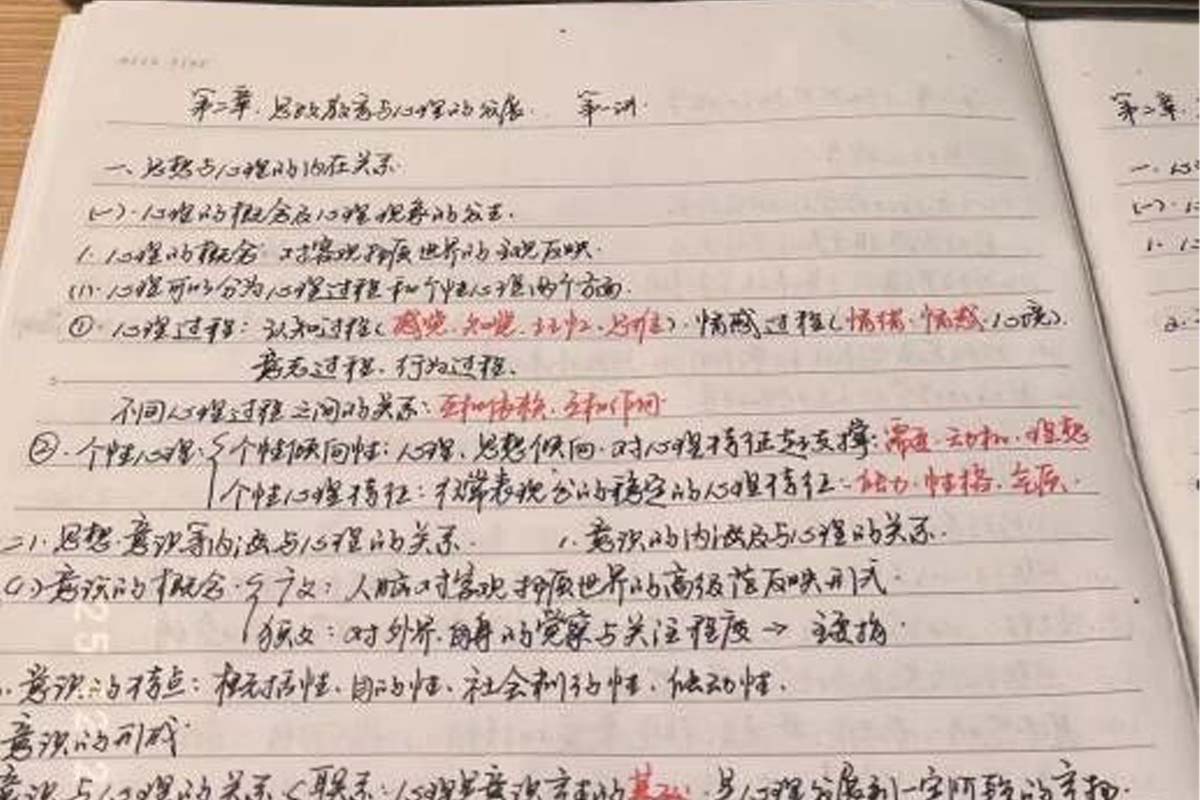 第二章.思政教育与心理的发展. 第一讲.
一、思想与心理的内在关系.
(一).心理的概念及心理现象的发生.
1.心理的概念.对客观物质世界的主观反映.
(1).心理可以分为心理过程和个性心理两个方面.
①心理过程:认知过程(感觉.知觉.记忆.思维).情感过程(情绪.情感.心境).
意志过程、行为过程、
不同心理过程之间的关系:互相转换.互相作用.
②.个性心理:{个性倾向性:心理、思想倾向.对心理特征起支撑:需要.动机.理想
个性心理特征:经常表现出的稳定的心理特征-能力.性格.气质.
(二).思想.意识等内涵与心理的关系. 1.意识的内涵及与心理的关系.
(1)意识的概念.{广义:人脑对客观物质世界的高级反映形式.
狭义:对外界、自身的觉察与关注程度→主要指.
意识的特点:概括性、目的性、社会制约性、能动性.
意识的形成
意识与心理的关系<联系:心理是意识产生的基础.是心理发展到一定阶段的产物.
第二章.
一.心
(一).心
1.心
2.